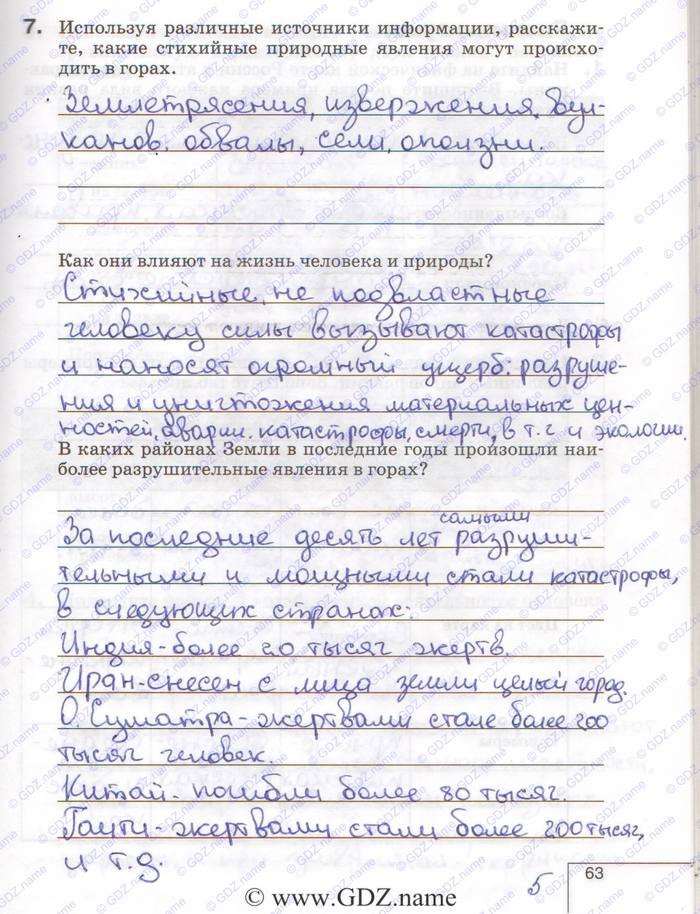 7. Используя различные источники информации, расскажи-
те, какие стихийные природные явления могут происхо-
дить в горах.
Землетрясения, извержения вул-
канов, обвалы, сели, оползни.
Как они влияют на жизнь человека и природы?
Стихийные, не подвластные
человеку силы вызывают катастрофы
и наносят огромный ущерб: разруше-
ния и уничтожения материальных цен-
ностей, аварии. катастрофы, смерти, в т.ч и экологии.
В каких районах Земли в последние годы произошли наи-
более разрушительные явления в горах?
самыми
За последние десять лет разруши-
тельными и мощными стали катастрофы,
в следующих странах:
Индия - более 20 тысяч жертв.
Иран - снесен с лица земли целый город.
О. Суматра - жертвами стале более 200
тысяч человек.
Китай - погибли более 80 тысяч.
Гаити - жертвами стали более 200 тысяч,
и т.д.
5
63
© www.GDZ.name